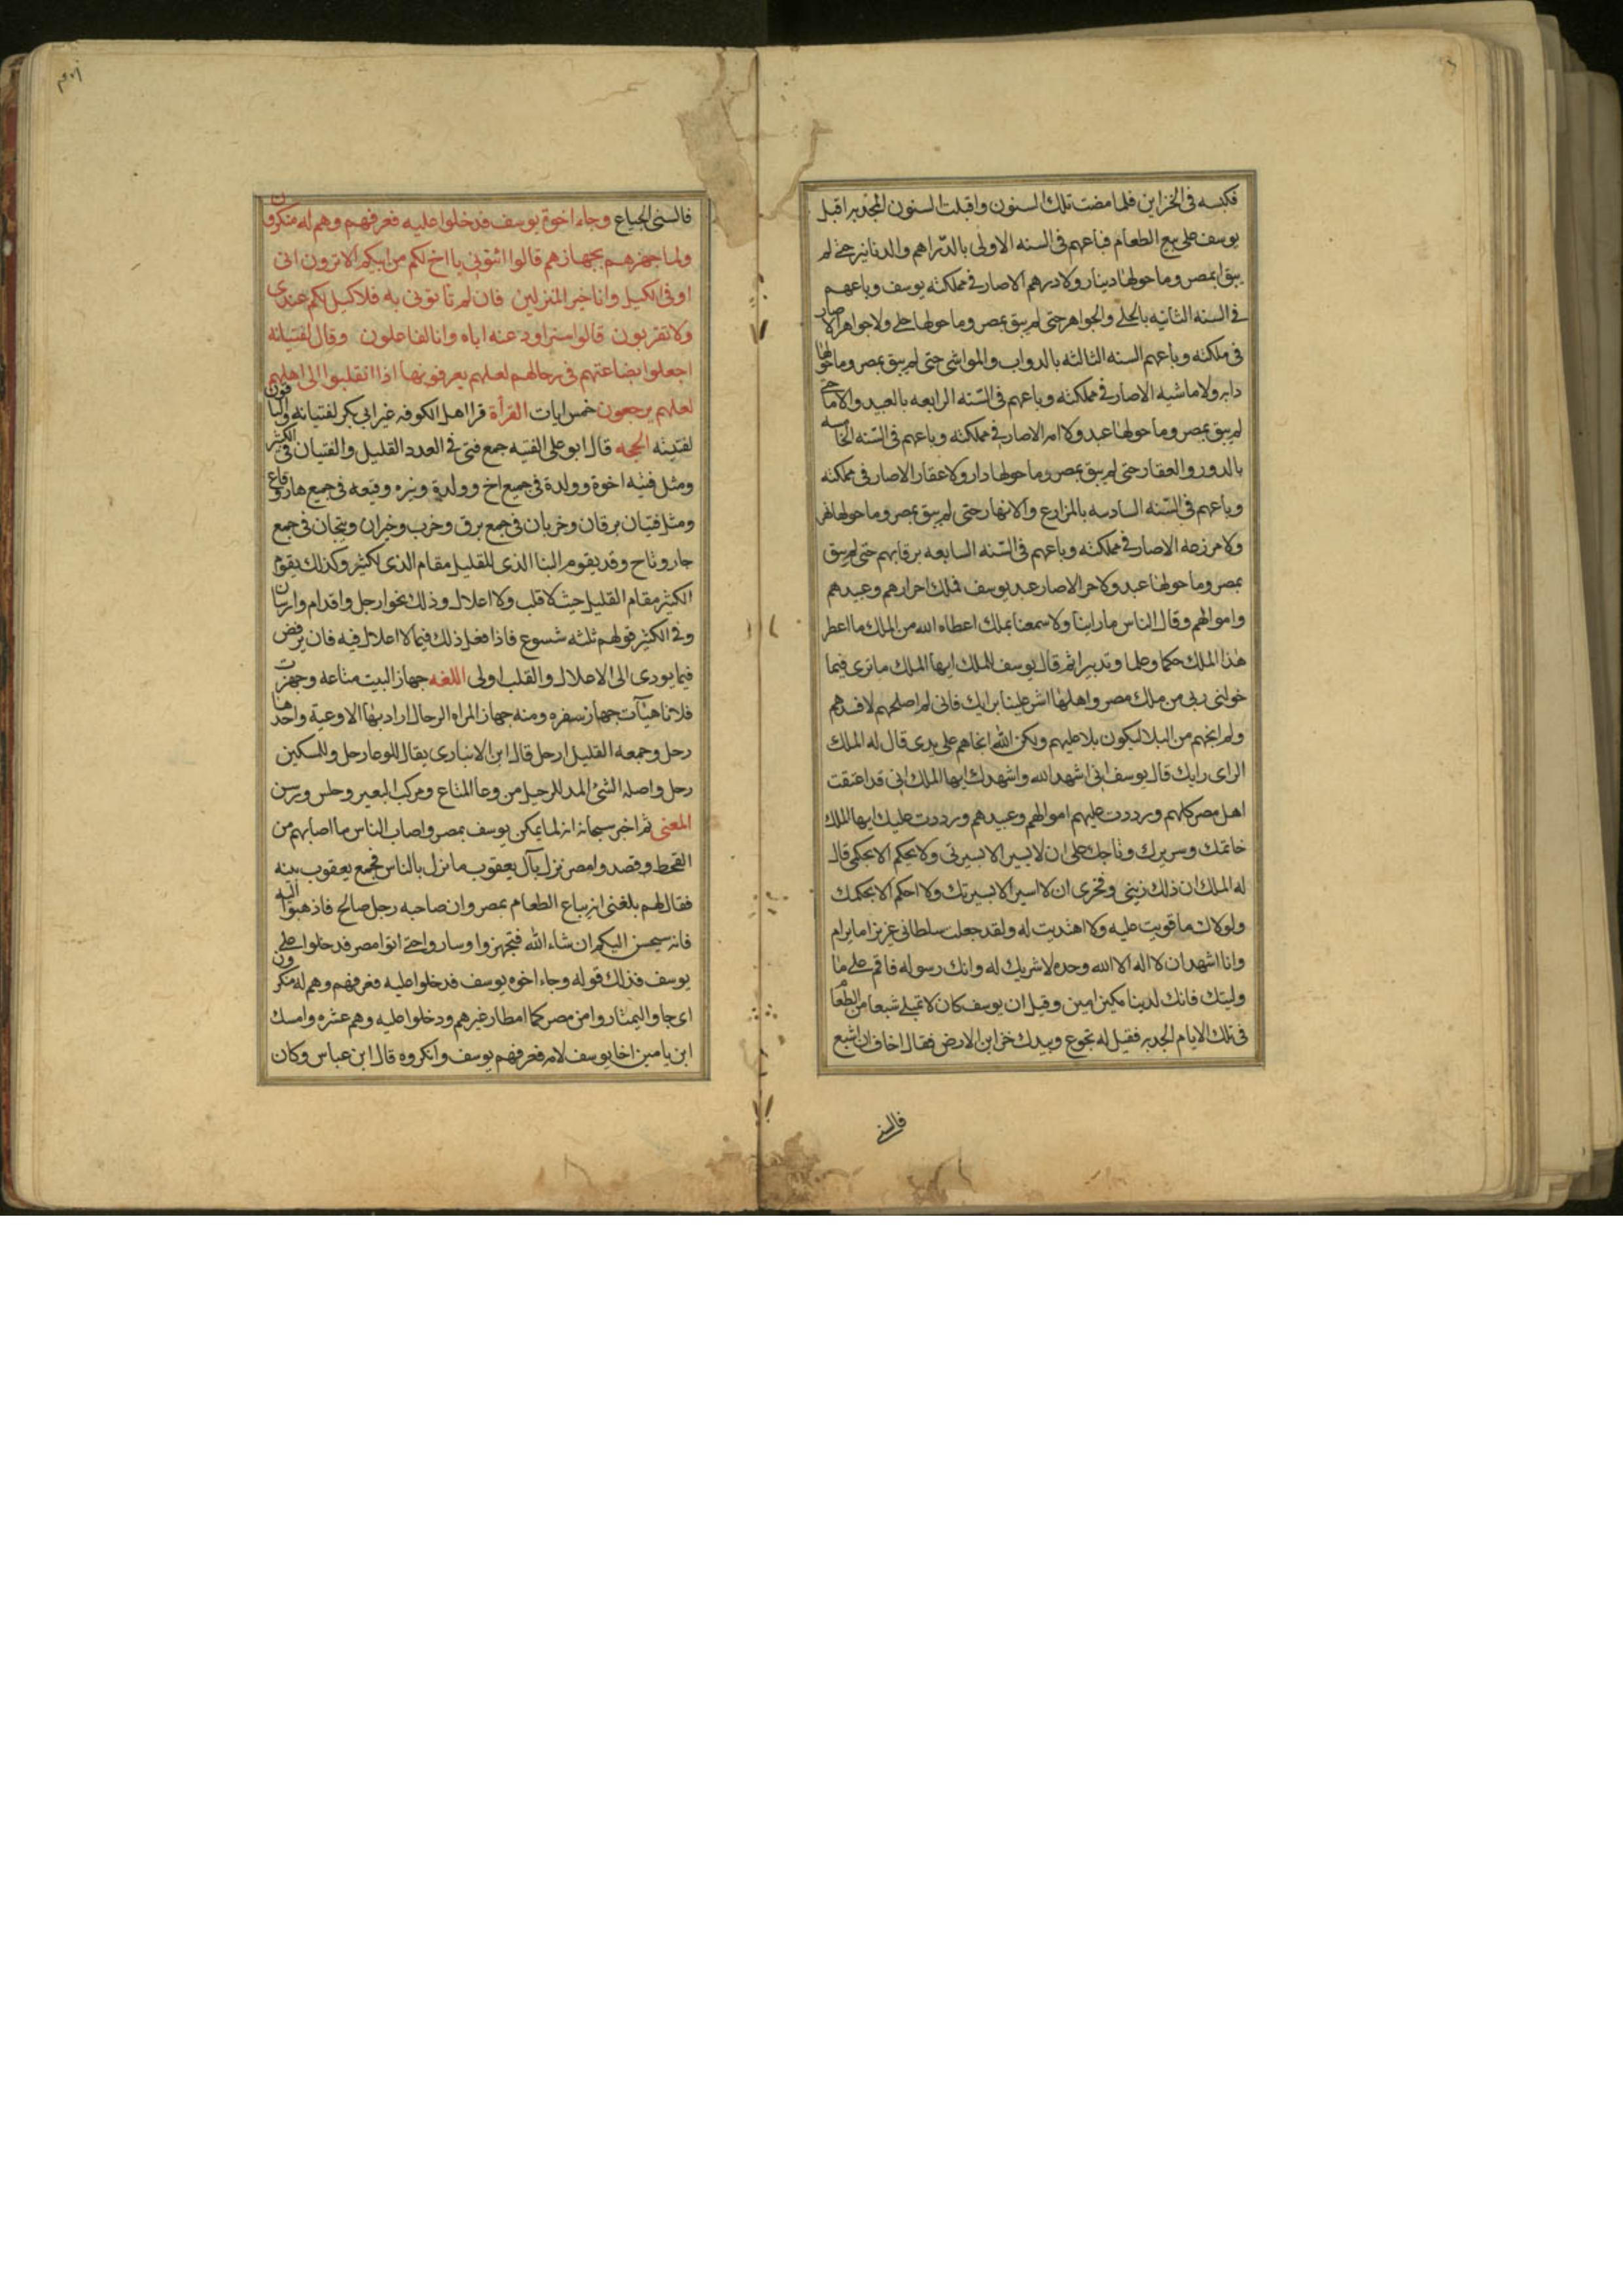 فكبسه فى الخزاين فلما مضت تلك السنون واقبلت السنون المجدبه اقبل
يوسف على بيع الطعام فباعهم فى السنه الاولى بالدراهم والدنانير حتى لم
يبق بمصر وما حولها دينار ولا درهم الا صار فى مملكته يوسف وباعهم
فى السنه الثانيه بالحلى والجواهر حتى لم يبق بمصر وما حولها حلى ولا جواهر الا صار
فى ملكته وباعهم السنه الثالثه بالدواب والمواشى حتى لم يبق بمصر وما حولها
دابه ولا ماشيه الا صار فى مملكته وباعهم فى السنه الرابعه بالعبيد والاما حتى
لم يبق بمصر وما حولها عبد ولا امه الا صار فى مملكته وباعهم فى السنه الخامسه
بالدور والعقار حتى لم يبق بمصر وما حولها دار ولا عقار الا صار فى مملكته
وباعهم فى السنه السادسه بالمزارع والانهار حتى لم يبق بمصر وما حولها نهر
ولا مزرعه الا صار فى مملكته وباعهم فى السنه السابعه برقابهم حتى لم يبق
بمصر وما حولها عبد ولا حر الا صار عبد يوسف فملك احرارهم وعبيدهم
واموالهم وقال الناس ما راينا ولا سمعنا بملك اعطاه الله من الملك ما اعطى
هذا الملك حكما وعلما وتدبيرا ثم قال يوسف للملك ايها الملك ما ترى فيما
خولنى ربى من ملك مصر واهلها اشر علينا برايك فانى لم اصلحهم لافسدهم
ولم انجهم من البلا ليكون بلا عليهم ولكن الله انجاهم على يدى قال له الملك
الراى رايك قال يوسف انى اشهد الله واشهدك ايها الملك انى قد اعتقت
اهل مصر كلهم ورددت عليهم اموالهم وعبيدهم ورددت عليك ايها الملك
خاتمك وسريرك وتاجك على ان لا يسير الا بسيرتى ولا يحكم الا بحكمى قال
له الملك ان ذلك زينى وفخرى ان لا اسير الا بسيرتك ولا احكم الا بحكمك
ولولاك ما قويت عليه ولا اهتديت له ولقد جعلت سلطانى عزيزا ما يرام
وانا اشهد ان لا اله الا الله وحده لا شريك له وانك رسوله فاقم على ما
وليتك فانك لدينا مكين امين وقيل ان يوسف كان لا يمتلى شبعا من الطعام
فى تلك الايام الجدبه فقيل له تجوع وبيدك خزاين الارض فقال اخاف ان اشبع
فالسنى
فالسنى الجياع وجاء اخوة يوسف فدخلوا عليه فعرفهم وهم له منكرون
ولما جهزهم بجهازهم قالوا ائتونى باخ لكم من ابيكم الا ترون انى
اوفى الكيل وانا خير المنزلين فان لم تاتونى به فلا كيل لكم عندى
ولا تقربون قالوا سنراود عنه اباه وانا لفاعلون وقال لفتيانه
اجعلوا بضاعتهم فى رحالهم لعلهم يعرفونها اذا انقلبوا الى اهلهم
لعلهم يرجعون خمس ايات القرأة قرا اهل الكوفه غير ابى بكر لفتيانه والباقون
لفتيته الحجه قال ابو على الفتيه جمع فتى فى العدد القليل والفتيان فى الكثير
ومثل فتيه اخوة وولدة فى جميع اخ وولد ونيره وقيعه فى جميع نار وقاع
ومثل فتيان برقان وخربان فى جمع برق وخرب وجيران وتيجان فى جمع
جار وتاج وقد يقوم البنا الذى للقليل مقام الذى لكثير وكذلك يقوم
الكثير مقام القليل حيث لا قلب ولا اعلال وذلك نحو ارجل واقدام وارسان
وفى الكثير قولهم ثلثه شسوع فاذا فعل ذلك فيما لا اعلال فيه فان يرفض
فيما يودى الى الاعلال والقلب اولى اللغه جهاز البيت متاعه وجهزت
فلانا هيأت جهاز سفره ومنه جهاز المراه الرحال اراد بها الاوعية واحدها
رحل وجمعه القليل ارحل قال ابن الانبارى يقال للوعا رحل وللسكين
رحل واصله الشئ المد للرحيل من وعا المتاع ومركب البعير وحلس ورسن
المعنى ثم اخبر سبحانه انه لما يمكن يوسف بمصر واصاب الناس ما اصابهم من
القحط وقصدوا مصر نزل بآل يعقوب ما نزل بالناس فجمع يعقوب بنيه
فقال لهم بلغنى انه يباع الطعام بمصر وان صاحبه رجل صالح فاذهبوا اليه
فانه سيحسن اليكم ان شاء الله فتجهزوا وساروا حتى اتوا مصر فدخلوا على
يوسف فذلك قوله وجاء اخوه يوسف فدخلوا عليه فعرفهم وهم له منكرون
اى جاوا ليمتاروا من مصر كما امطار غيرهم ودخلوا عليه وهم عشره وامسك
ابن يامين اخا يوسف لامه فعرفهم يوسف وانكروه قال ابن عباس وكان